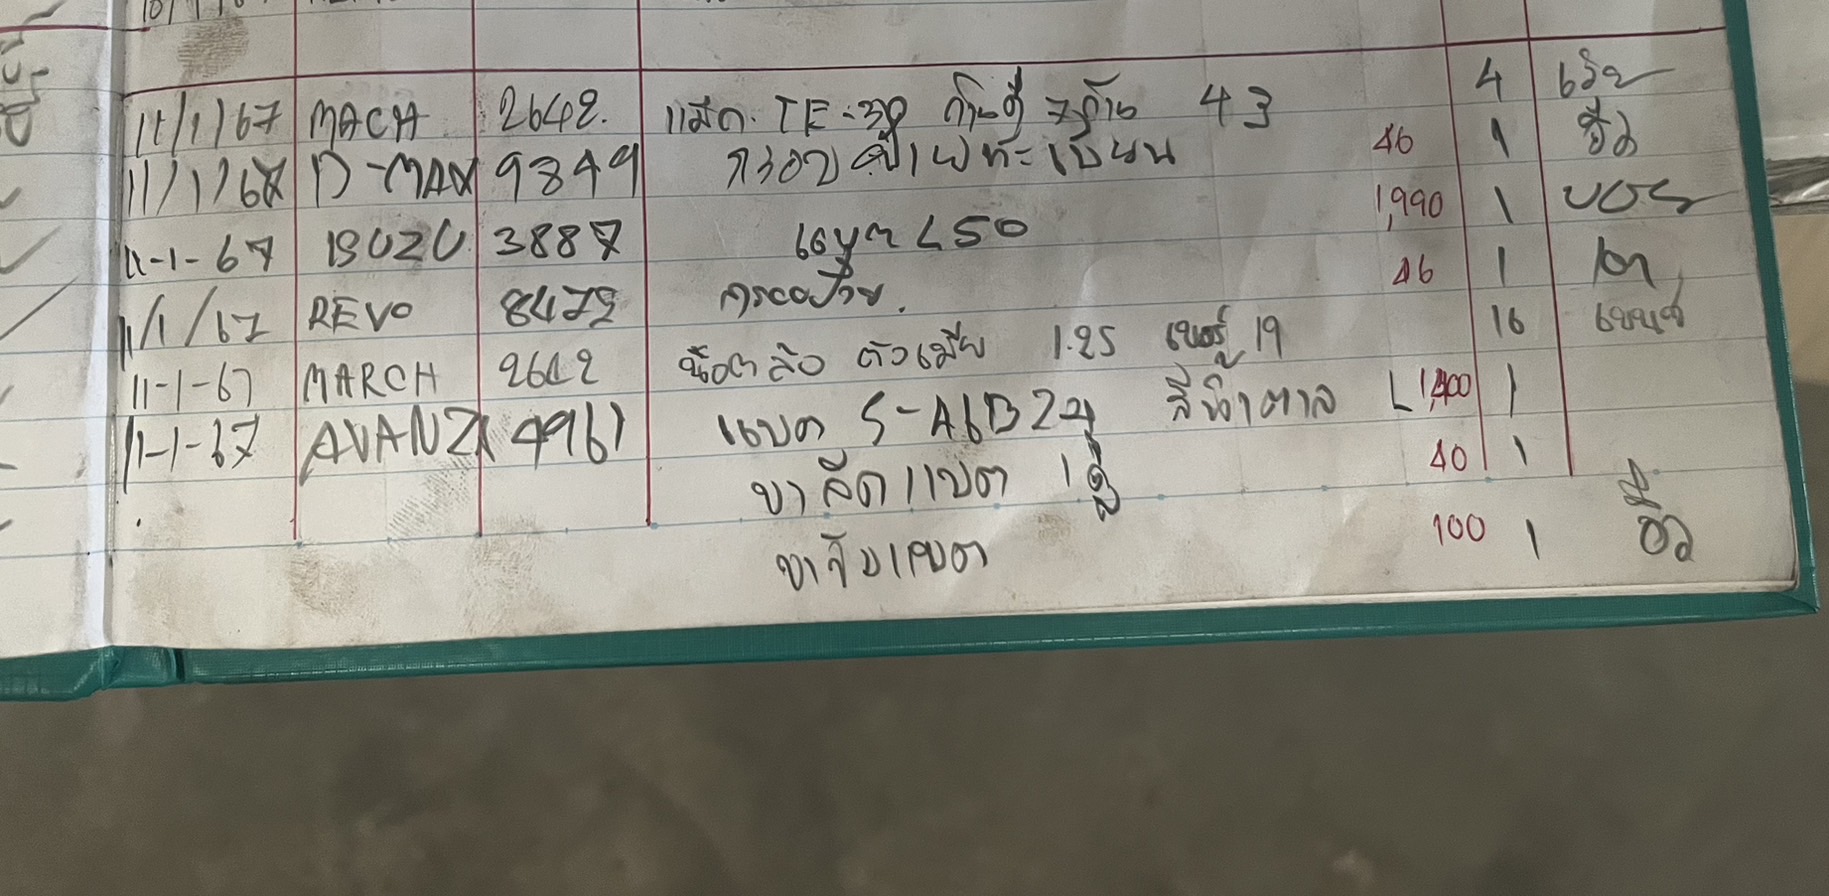 11/1/67 MACH 2642. แม็ก TE-39 ก้านคู่ 7 ก้าน 43 4
11/1/67 D-MAX 9849 กรอบป้ายทะเบียน 46 1
11-1-67 ISUZU 3887 L50 1,990 1 บอย
11/1/67 REVO 8472 กรอบป้าย. 46 1
11-1-67 MARCH 2642 น๊อตล้อ ตัวเมีย 1.25 เบอร์ 19 16
11-1-67 AVANZA 4961 แบต S-A6B24 สีน้ำตาล L 1,400 1
ขายึดแบต 1 40 1
ขาจับแบต 100 1